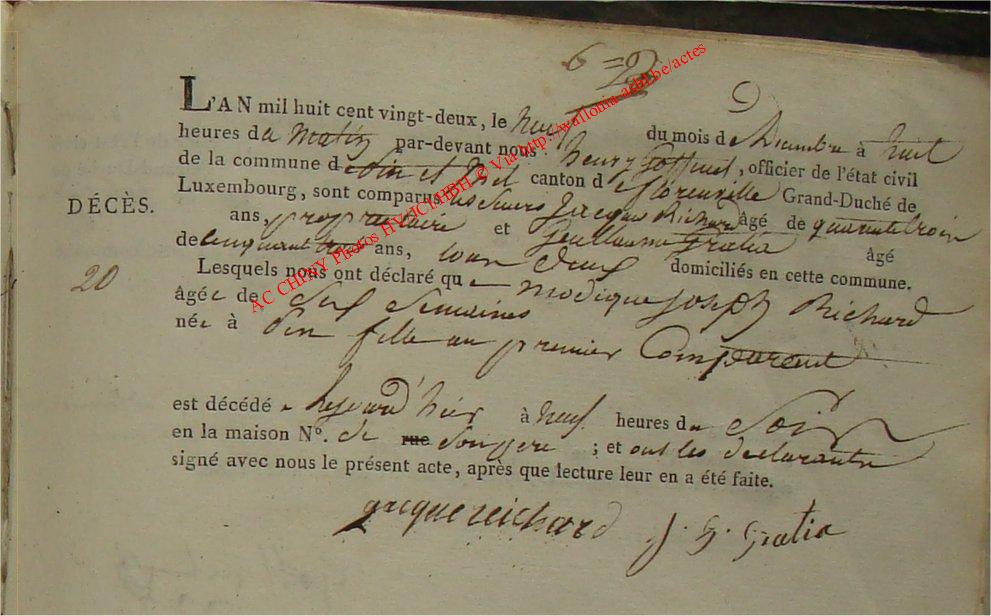 6 =
L'AN mil huit cent vingt-deux, le neuf du mois de Décembre à huit
heures du Matin par-devant nous henry Goffinet, officier de l'état civil
de la commune de pin et Izel canton de florenville Grand-Duché de
Luxembourg, sont comparus les sieurs jacques Richard Âgé de quarante trois
ans, proprietaire et Guillaume Gratia âgé
de cinquante ans, tous deux domiciliés en cette commune.
DÉCÈS.
20
Lesquels nous ont déclaré que modique joseph Richard
âgée de Six Semaines
née à pin fille au premier Comparant
est décédée à neuf heures du Soir
en la maison Nº. de rue ; et ont les declarants
signé avec nous le présent acte, après que lecture leur en a été faite.
jacque richard J. G. Gratia
AC CHINY Photos HV-JCH-IBH © Via http://wallonia-asbl.be/actes